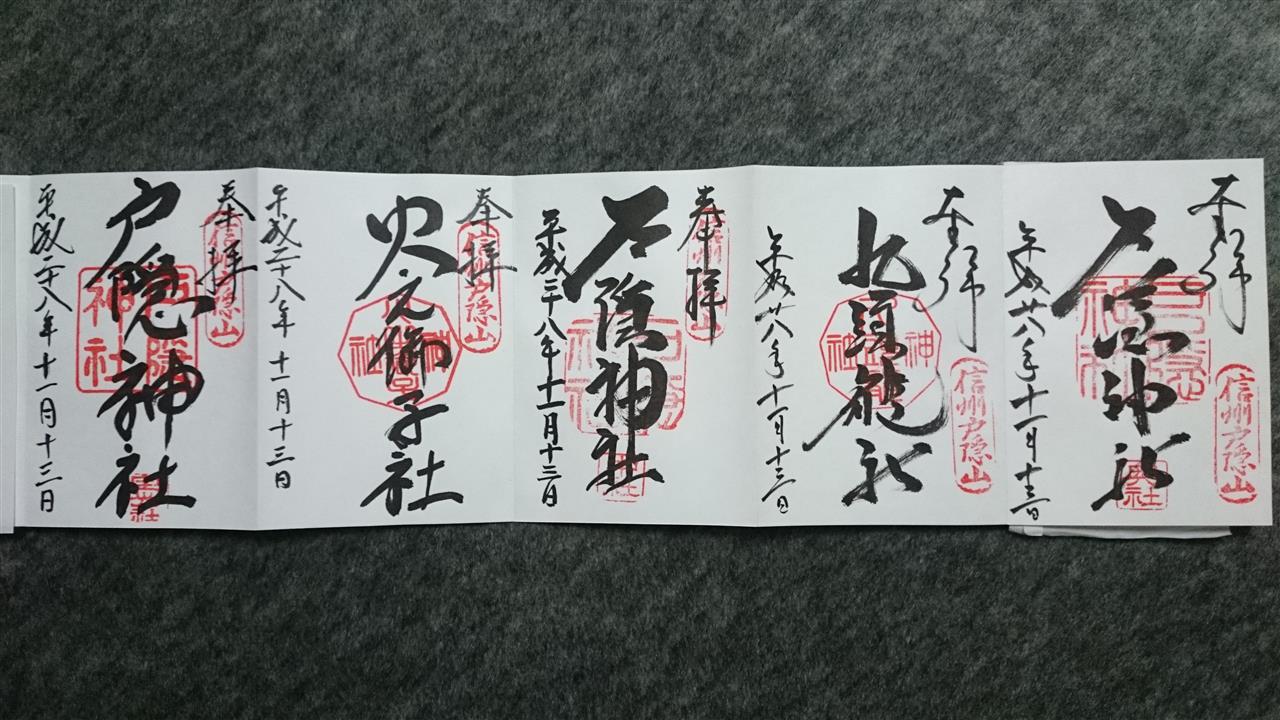 奉拝
信州戸隠山
戸隠神社
奥社
平成廿八年十一月十三日
奉拝
信州戸隠山
九頭龍社
平成廿八年十一月十三日
奉拝
信州戸隠山
戸隠神社
平成二十八年十一月十三日
奉拝
信州戸隠山
火之御子社
平成二十八年十一月十三日
奉拝
信州戸隠山
戸隠神社
平成二十八年十一月十三日